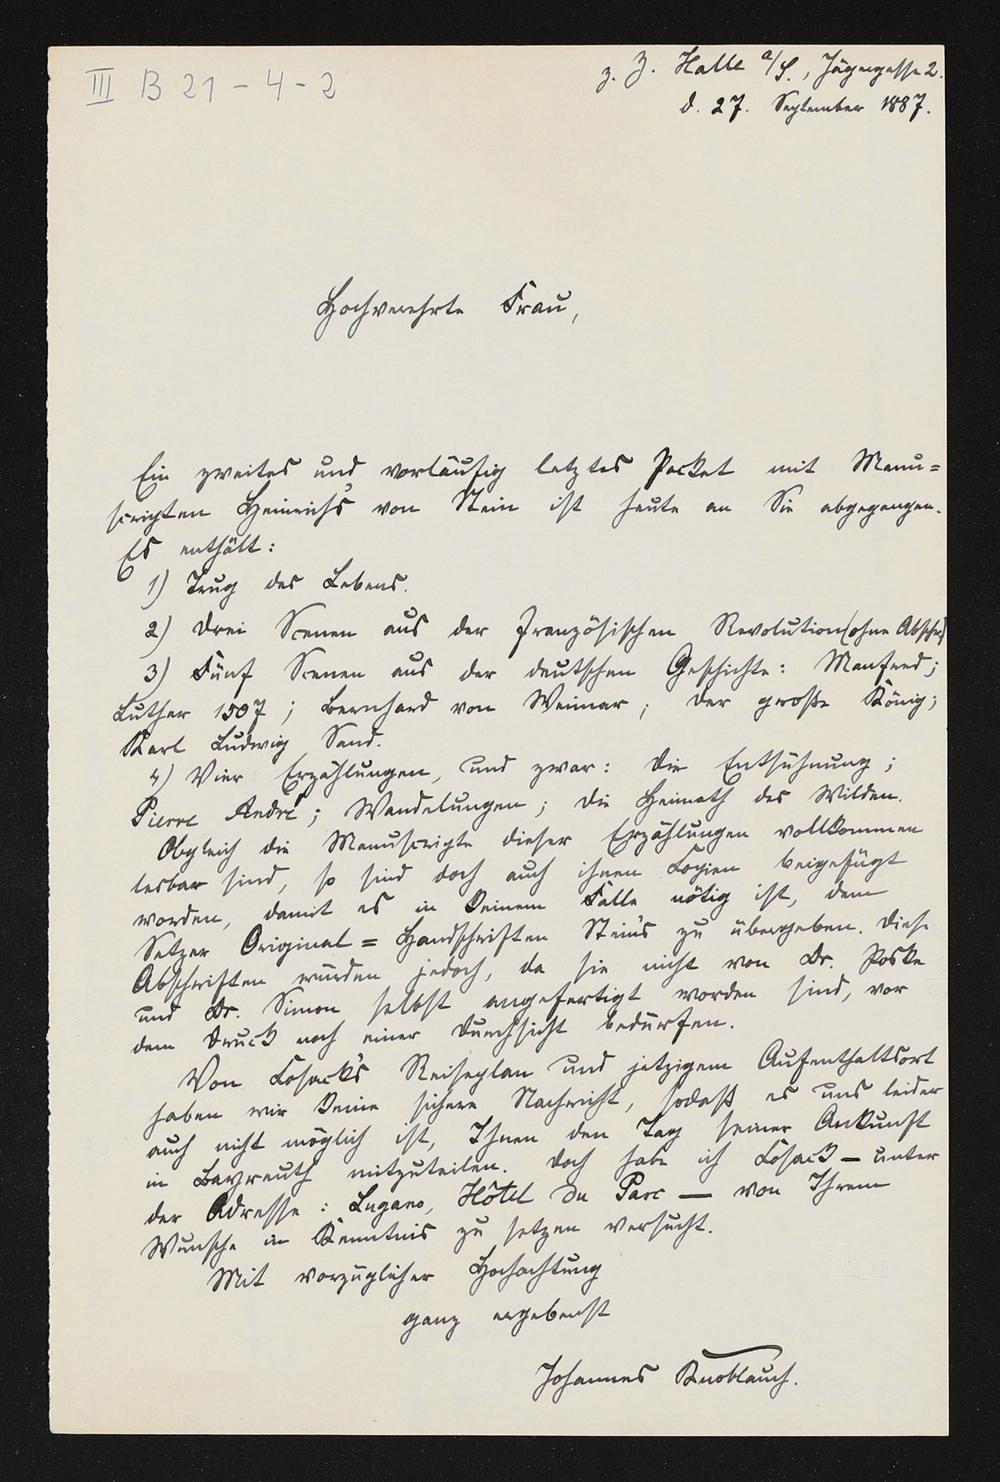 III B 21 - 4 - 2
z. Z. Halle a/S., Jägergasse 2.
d. 27. September 1887.
Hochverehrte Frau,
Ein zweites und vorläufig letztes Packet mit Manu=
scripten Heinrich's von Stein ist heute an Sie abgegangen.
Es enthält:
1) Trug des Lebens.
2) Drei Scenen aus der französischen Revolution (ohne Abschr.)
3) Fünf Scenen aus der deutschen Geschichte: Manfred;
Luther 1507; Bernhard von Weimar; Der große König;
Karl Ludwig Sand.
4) Vier Erzählungen, und zwar: Die Entsühnung;
Pierre André; Wandelungen; Die Heimath des Wilden.
Obgleich die Manuscripte dieser Erzählungen vollkommen
lesbar sind, so sind doch auch ihnen Copien beigefügt
worden, damit es in keinem Falle nötig ist, dem
Setzer Original = Handschriften Stein's zu übergeben. Diese
Abschriften würden jedoch, da sie nicht von Dr. Poske
und Dr. Simon selbst angefertigt worden sind, vor
dem Druck noch einer Durchsicht bedürfen.
Von Losack's Reiseplan und jetzigem Aufenthaltsort
haben wir keine sichere Nachricht, sodaß es uns leider
auch nicht möglich ist, Ihnen den Tag seiner Ankunft
in Bayreuth mitzuteilen. Doch habe ich Losack — unter
der Adresse: Lugano, Hôtel du Parc — von Ihrem
Wunsche in Kenntnis zu setzen versucht.
Mit vorzüglicher Hochachtung
ganz ergebenst
Johannes Knoblauch.